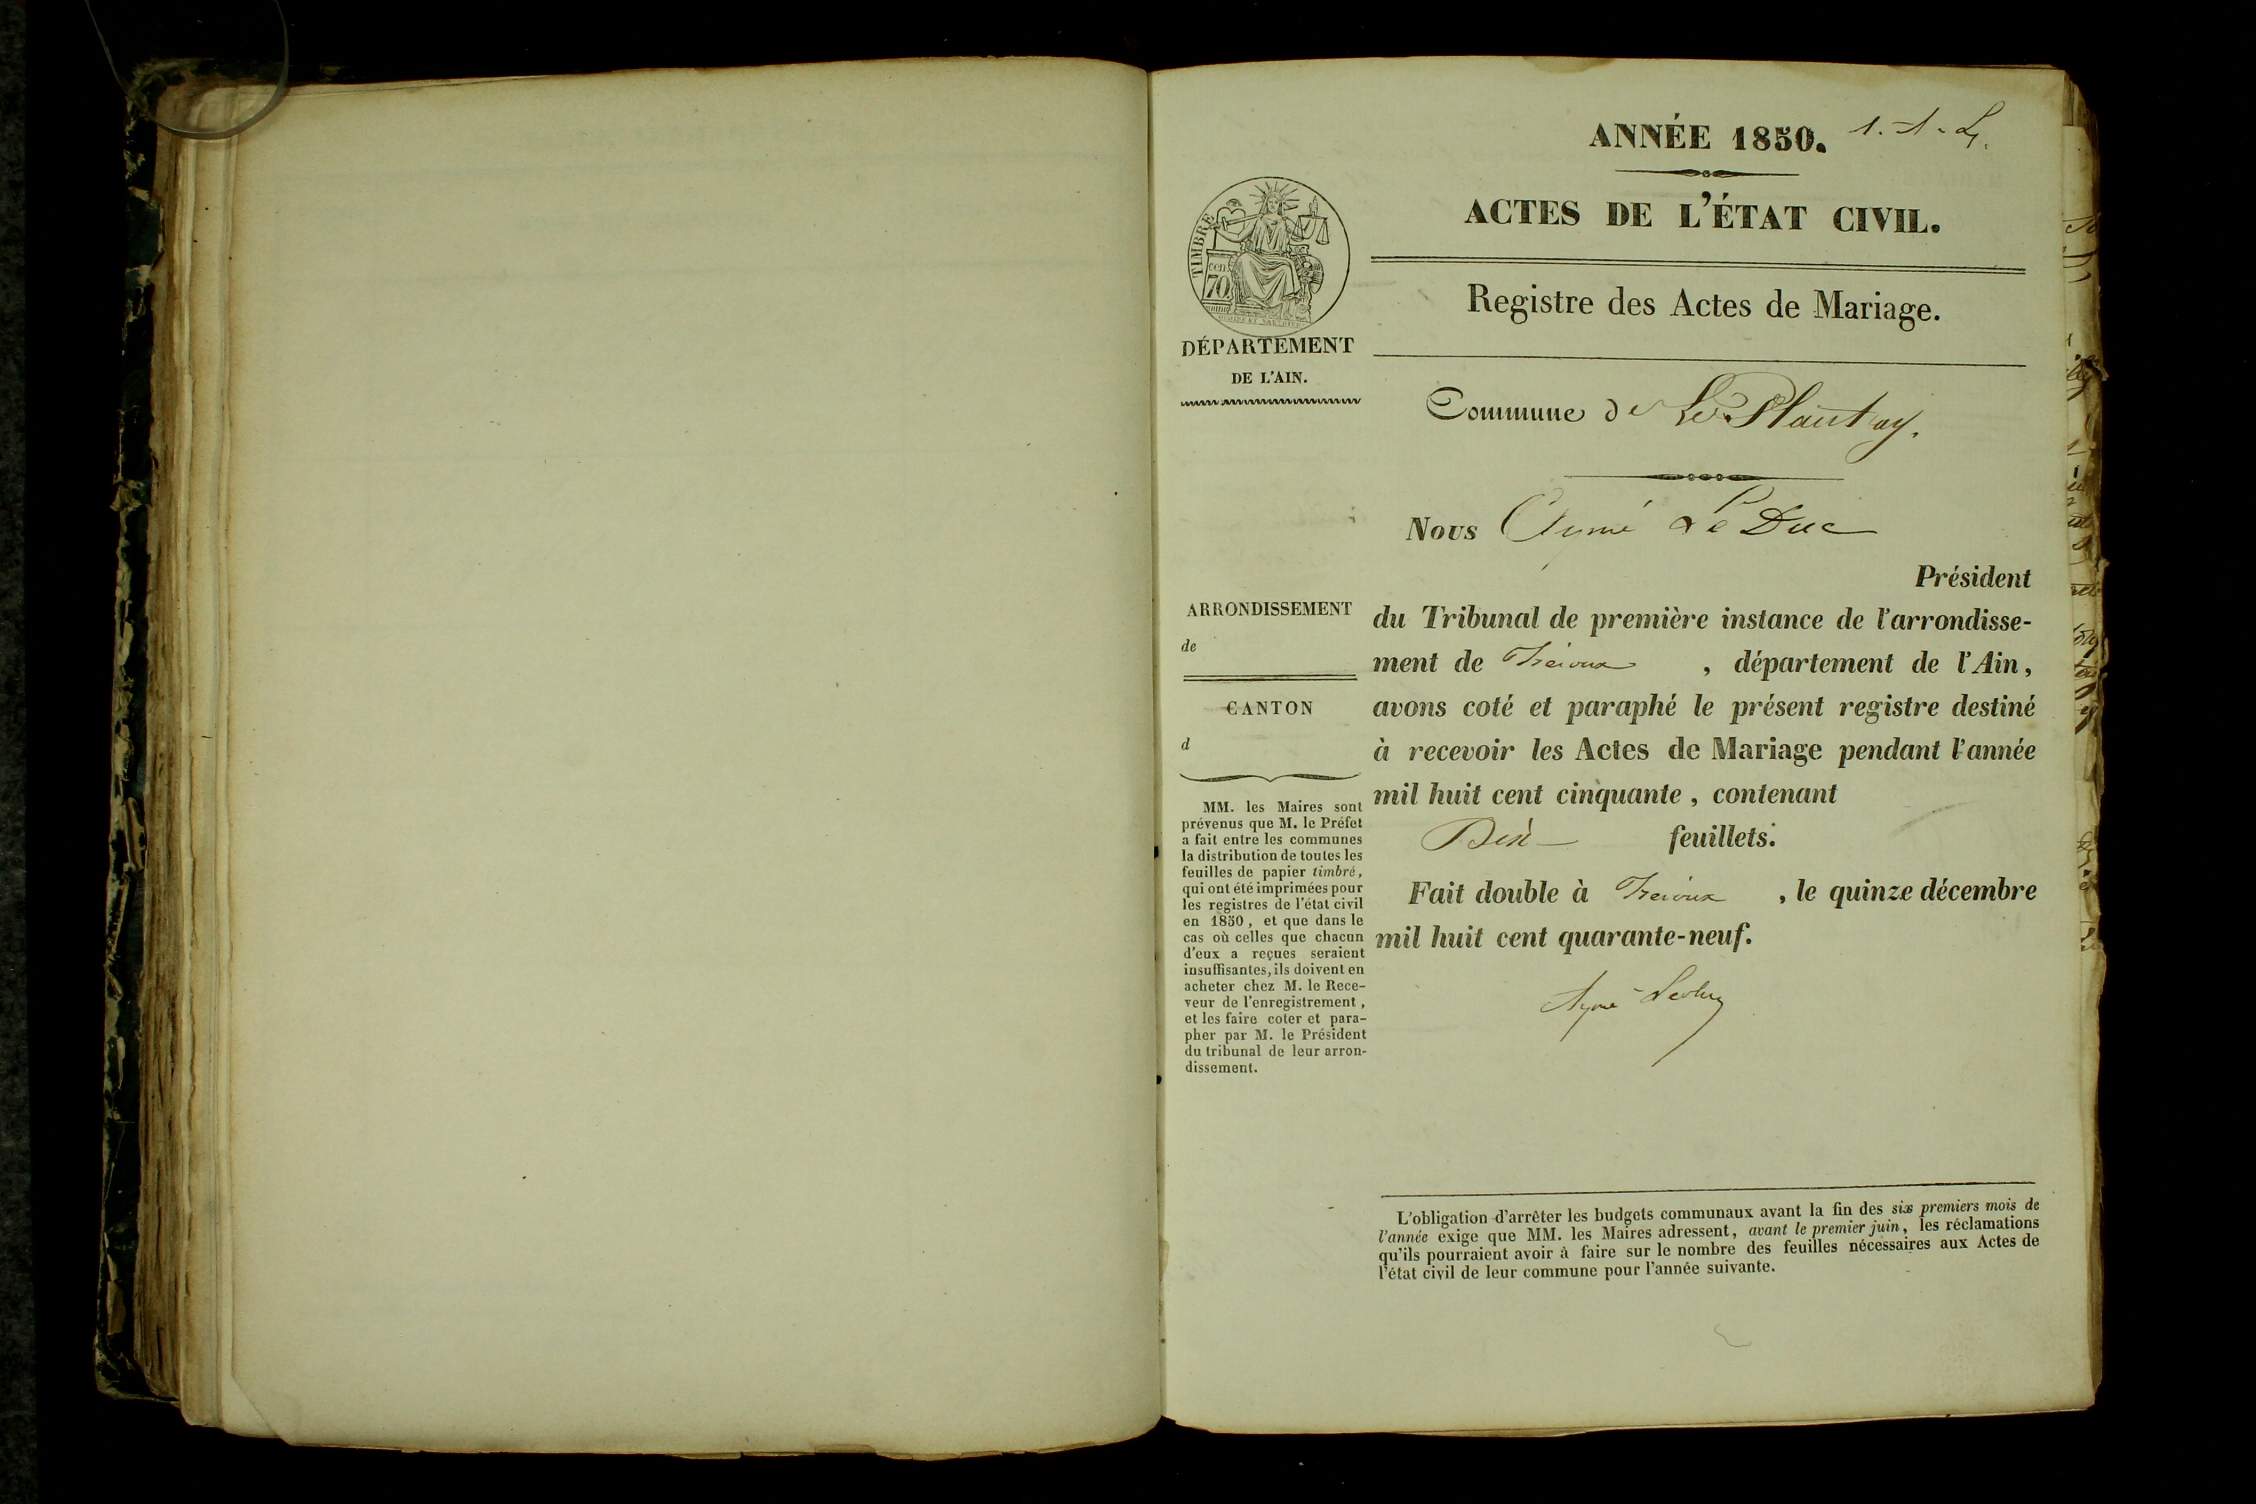 ANNÉE 1850.
1. - 1 -
ACTES DE L'ÉTAT CIVIL.
TIMBRE
cen.
70.
Registre des Actes de Mariage.
DÉPARTEMENT
DE L'AIN.
Commune de Le Plantay.
Nous Aymé Le Duc
Président
du Tribunal de première instance de l'arrondisse-
ment de Trévoux , département de l'Ain,
avons coté et paraphé le présent registre destiné
à recevoir les Actes de Mariage pendant l'année
mil huit cent cinquante, contenant
feuillets.
Fait double à Trévoux , le quinze décembre
mil huit cent quarante-neuf.
Aymé Leduc
ARRONDISSEMENT
de
CANTON
d
MM. les Maires sont
prévenus que M. le Préfet
a fait entre les communes
la distribution de toutes les
feuilles de papier timbré,
qui ont été imprimées pour
les registres de l'état civil
en 1850, et que dans le
cas où celles que chacun
d'eux a reçues seraient
insuffisantes, ils doivent en
acheter chez M. le Rece-
veur de l'enregistrement,
et les faire coter et para-
pher par M. le Président
du tribunal de leur arron-
dissement.
L'obligation d'arrêter les budgets communaux avant la fin des six premiers mois de
l'année exige que MM. les Maires adressent, avant le premier juin, les réclamations
qu'ils pourraient avoir à faire sur le nombre des feuilles nécessaires aux Actes de
l'état civil de leur commune pour l'année suivante.